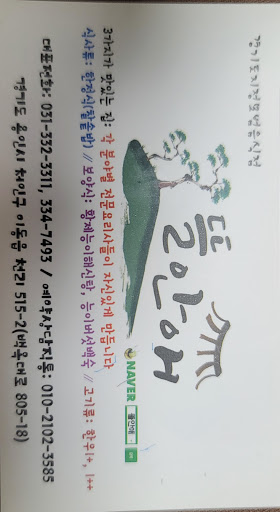 경기도지정모범음식점
뜰안애
NAVER 뜰안애
3가지가 맛있는 집: 각 분야별 전문요리사들이 자신있게 만듭니다
식사류: 한정식(찰솥밥) // 보양식: 황제능이해신탕, 능이버섯백숙 // 고기류: 한우1+, 1++
대표전화: 031-332-3311, 334-7493 / 예약상담직통: 010-2102-3585
경기도 용인시 처인구 이동읍 천리 515-2(백옥대로 805-18)